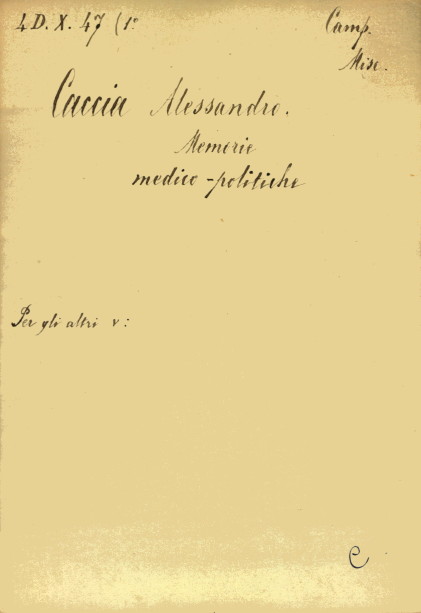 4 D. X. 47 (1º
Camp.
Misc.
Caccia Alessandro.
Memorie
medico-politiche
Per gli altri v:
C